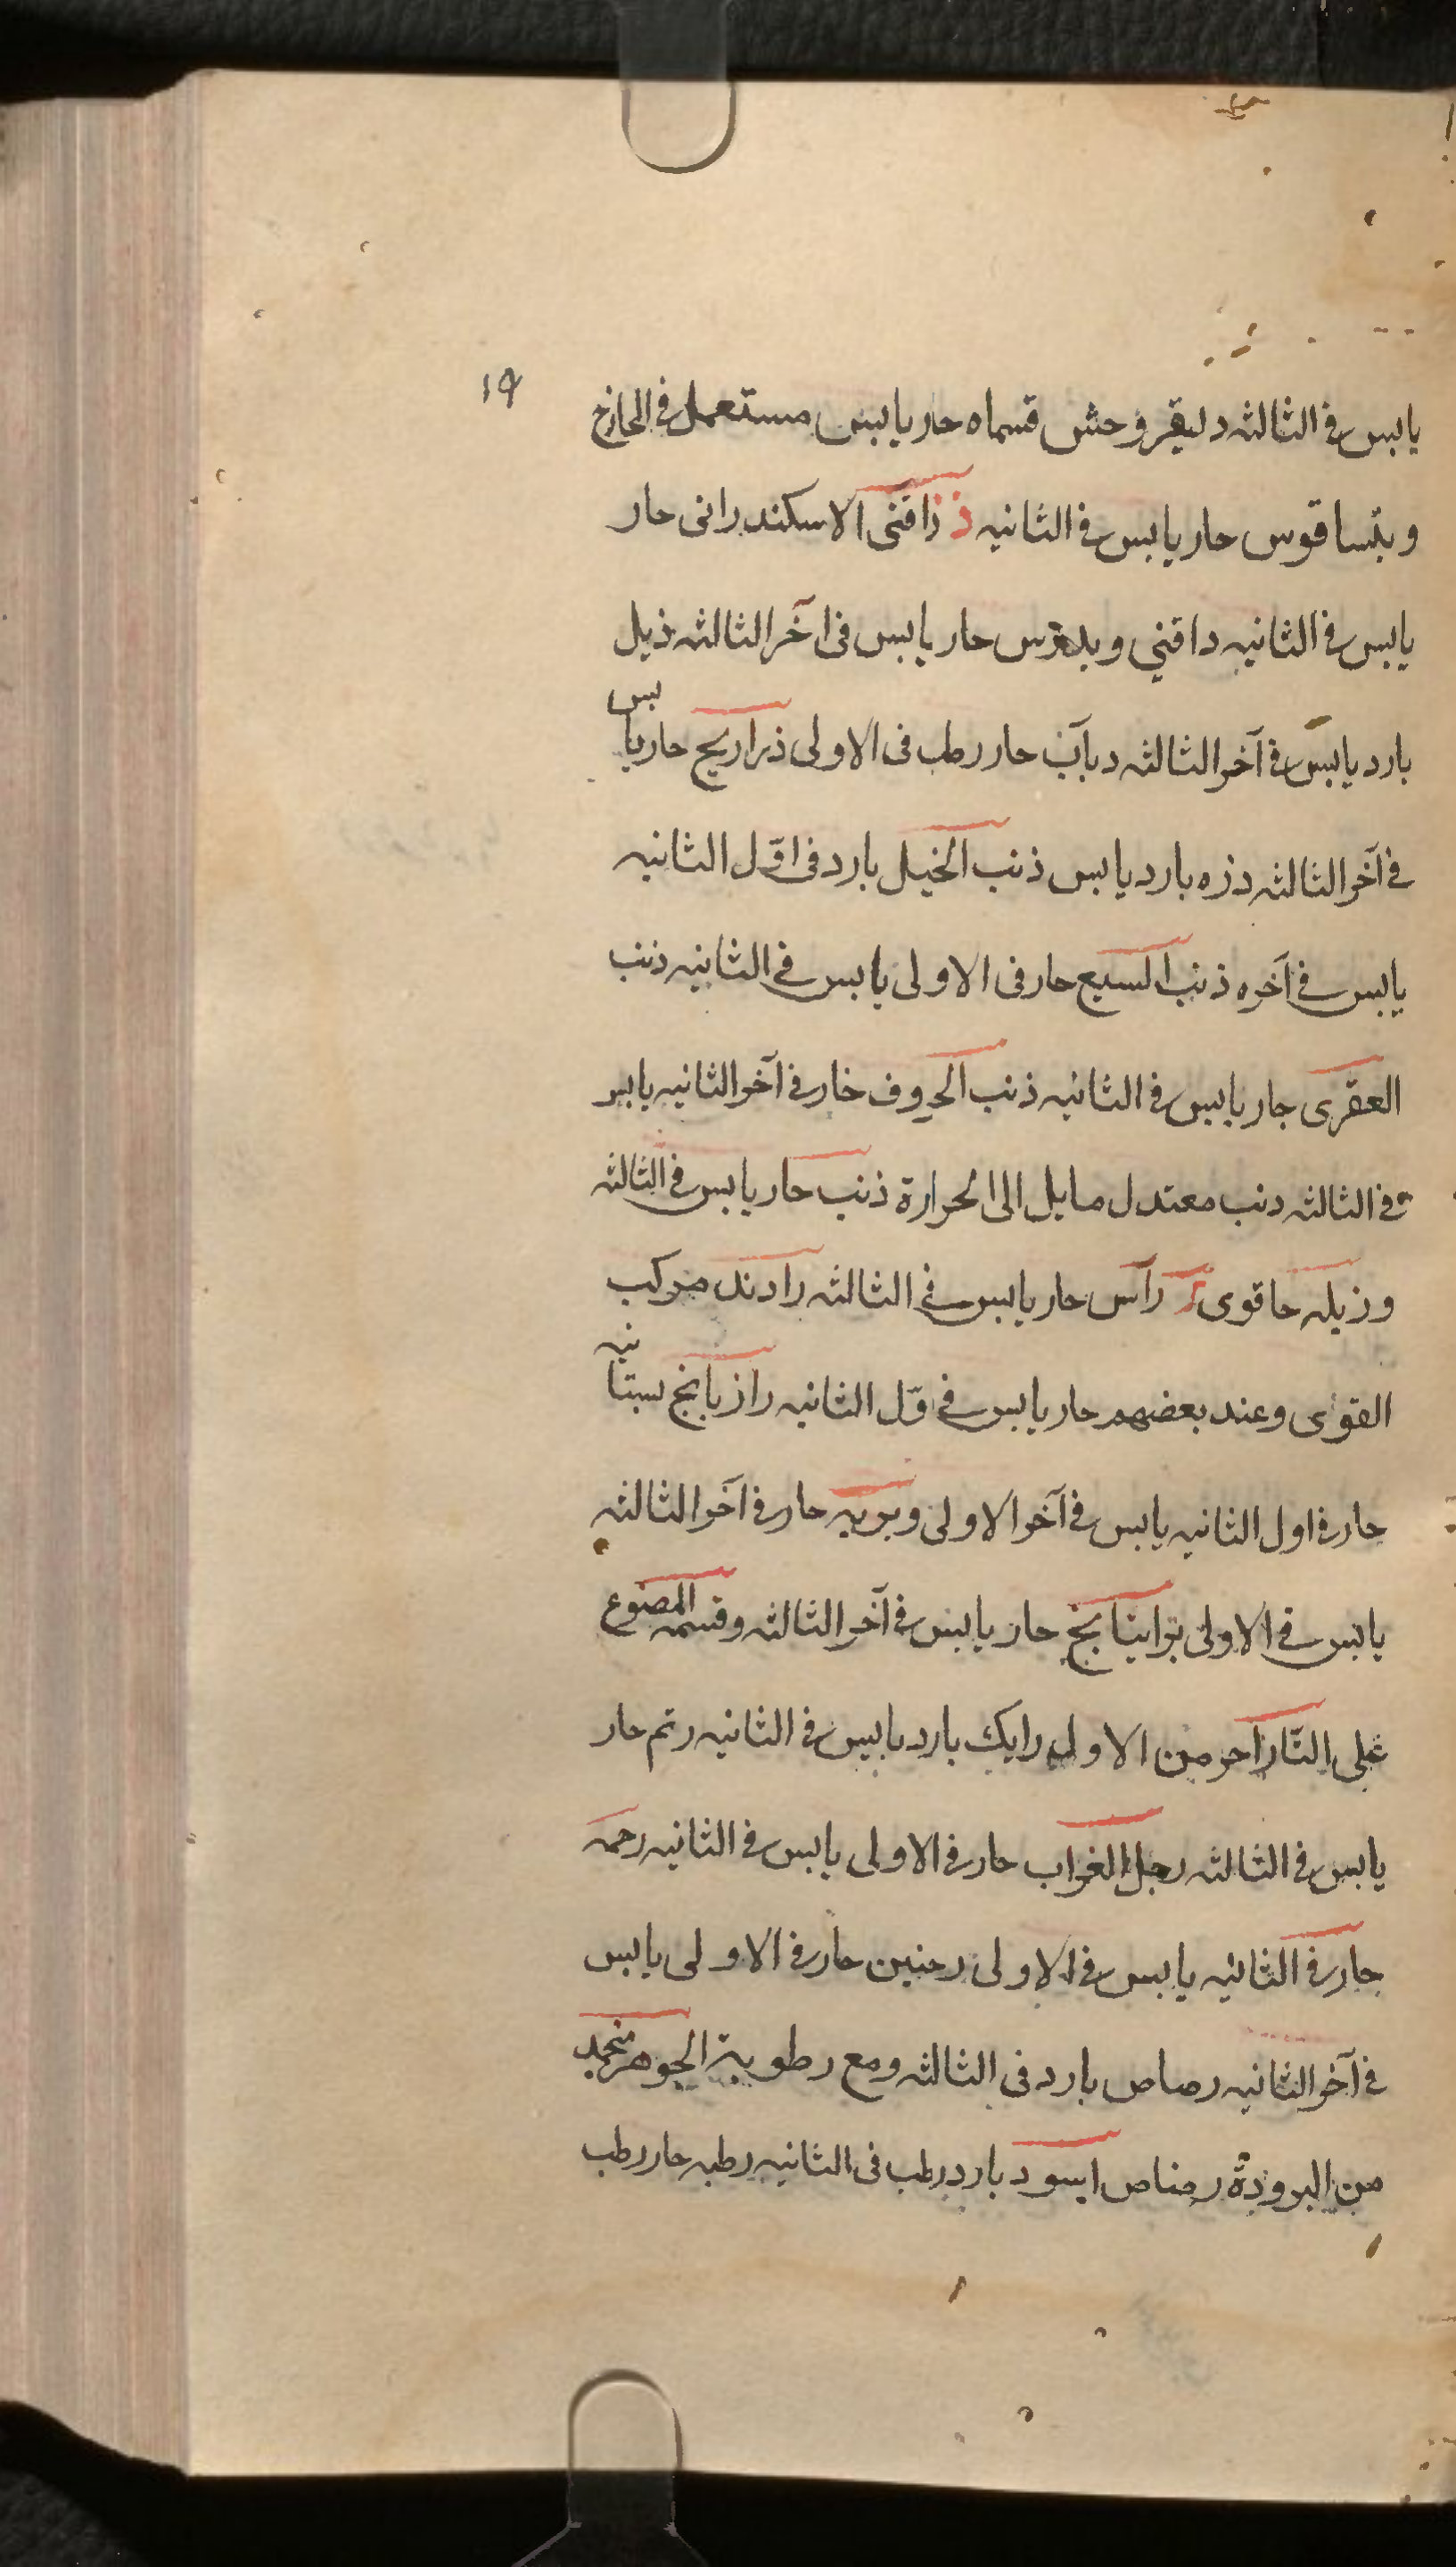 ١٩
يابس في الثالثه دليقر وحش قسماه حار يابس مستعمل في الخارج
وبتساقوس حار يابس في الثانيه ذ ذافنى الاسكندرانى حار
يابس في الثانيه دافني وبلاوس حار يابس فى آخر الثالثه ذيل
بارد يابس في آخر الثالثه دباب حار رطب فى الاولى ذراريح حار يابس
في آخر الثالثه دره بارد يابس ذنب الخيل بارد فى اوّل الثانيه
يابس في آخره ذنب السبع حار فى الاولى يابس في الثانيه ذنب
العقرى حار يابس في الثانيه ذنب الخروف خار في آخر الثانيه يابس
في الثالثه دنب معتدل مايل الى الحرارة ذنب حار يابس في الثالثه
وزيله حا قوى ر رآس حار يابس في الثالثه رادند مركب
القوى وعند بعضهم حار يابس في اوّل الثانيه رازيانج بستانيه
حار في اول الثانيه يابس في آخر الاولى وبريه حار في آخر الثالثه
يابس في الاولى براتيانج حار يابس في آخر الثالثه وقسمه المصنوع
على النّار آحر من الاولى رايك بارد يابس في الثانيه رتم حار
يابس في الثالثه رجل الغراب حار في الاولى يابس في الثانيه رحمه
حار في الثانيه يابس في الاولى رحنين حار في الاولى يابس
في آخر الثانيه رصاص بارد فى الثالثه ومع رطوبة الجوهر منجمد
من البرودة رصاص اسود بارد رطب فى الثانيه رطبه حار رطب